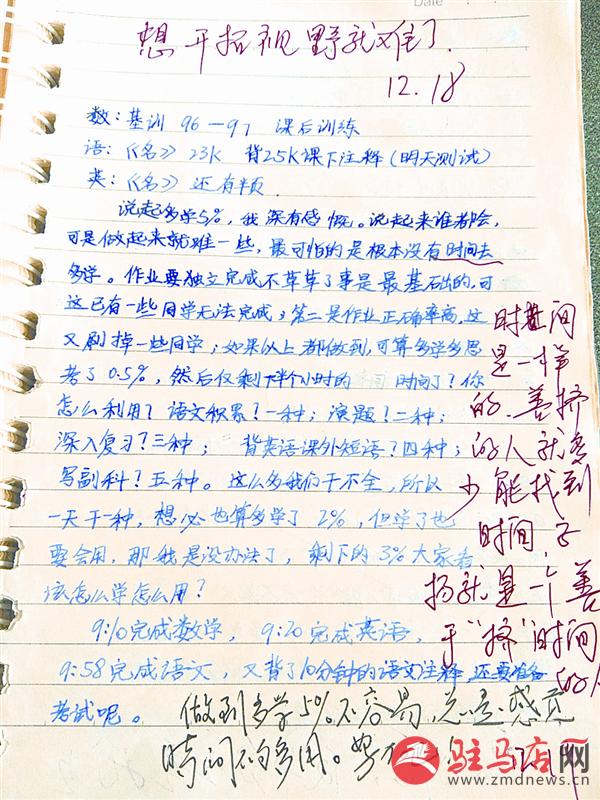 Date
想开拓视野就难了.
12.18
数：基训 96—97 课后训练
语：《名》 23K 背25K课下注释（明天测试）
英：《名》 还有半页
说起多学5%，我深有感慨。说起来谁都会，
可是做起来就难一些，最可怕的是根本没有时间去
多学。作业要独立完成不草草了事是最基础的，可
这已有一些同学无法完成；第二是作业正确率高，这
又刷掉一些同学；如果以上都做到，可算多学多思
考了0.5%，然后仅剩下半个小时的 时间了？你
怎么利用？语文积累？一种；演题？二种；
深入复习？三种；背英语课外短语？四种；
写副科？五种。这么多我们干不全，所以
一天干一种，想必也算多学了2%，但学了也
要会用，那我是没办法了，剩下的3%大家看
该怎么学怎么用？
9:10完成数学，9:20完成英语，
9:58完成语文，又背了10分钟的语文注释，还要准备
考试呢。
时间
是一样
的.善挤
的人就
少能找到
时间.子
扬就是一个善
于"挤"时间
的人
做到多学5%不容易，总是感觉
时间不够多用。
驻马店网
www.zmdnews.cn